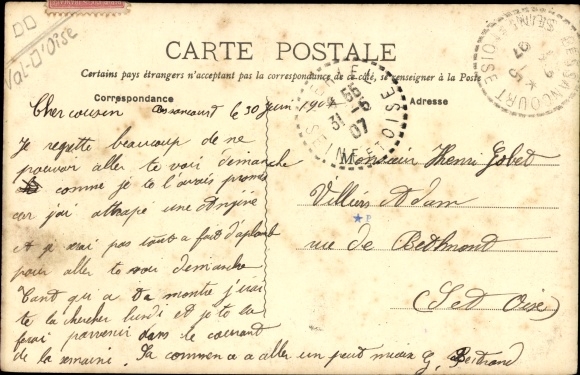 Val-D'Oise
CARTE POSTALE
Certains pays étrangers n'acceptant pas la correspondance de ce côté, se renseigner à la Poste
Correspondance
Adresse
Cher cousin Bessancourt le 30 Juin 1907
Je regrette beaucoup de ne
pouvoir aller te voir dimanche
comme je te l'avais promis
car j'ai attrapé une Angine
et je vai pas tout a fait d'aplomb
pour aller te voir demanche
Tant qu'a ta montre j'irai
te la chercher lundi et je te la
ferai parvenir dans le courant
de la semaine. Sa commence a aller un peut mieux G. Bertrand
Monsieur Henri Gobet
Villiers Adam
rue de Bethmont
(S et Oise)
BESSANCOURT
SEINE ET OISE
07
SEINE ET OISE
07